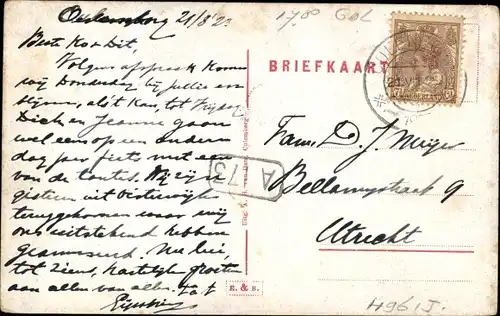 Culemborg 21/8 '23
Beste Ko & Dit,
Volgens afspraak komen
wij Donderdag bij jullie
als it kan, tot Vrijdag
Dich en Jeanne gaan
wel eens op een andere
dag per fiets met een
van de tantes. Wij zijn
gisteren uit Oisterwijk
teruggekomen waar wij
ons uitstekend hebben
geamuseerd. Nu lui,
tot ziens, hartelijke groeten
aan allen van allen.
17.80 Gol
BRIEFKAART
NEDERLAND
7½
A 73
Fam. D. J. Meijer
Bellamystraat 9
Utrecht
E. & B.
H961J.